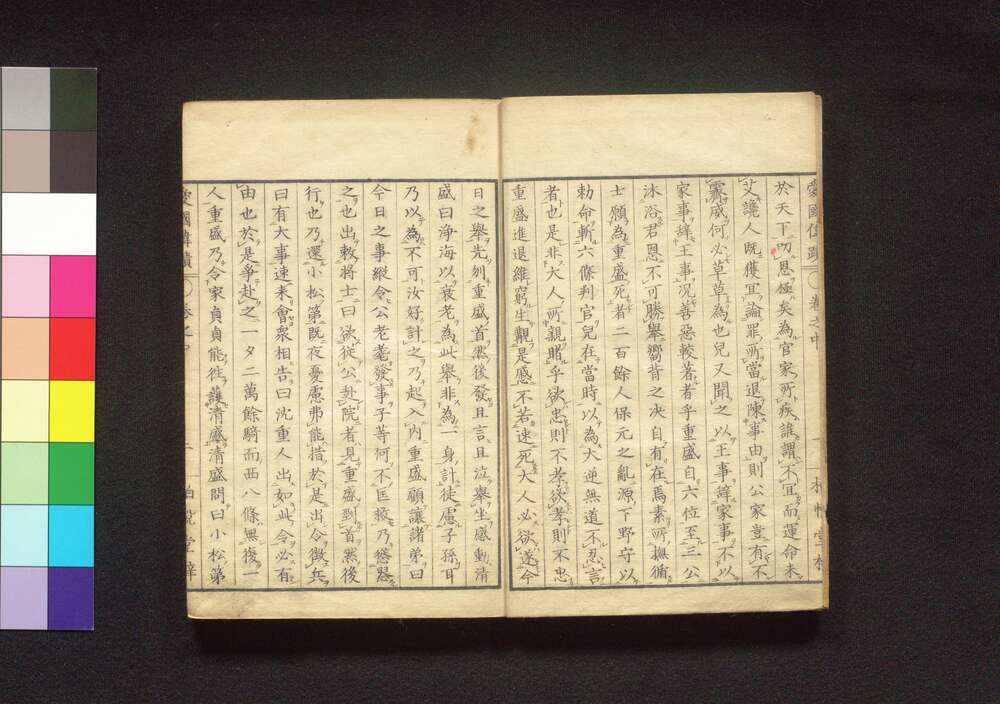 於天下叨恩極矣為官家所疾誰謂不宜而運命未
艾讒人既獲宜論罪所當退陳事由則公家豈有不
霽威何必草草為也兒又聞之以王事辭家事不以
家事辭王事况善惡較著者乎重盛自六位至三公
沐浴君恩不可勝舉嚮背之決自有在焉素所撫循
士願為重盛死者二百餘人保元之亂源下野守以
勅命斬六條判官兒在當時以為大逆無道不忍言
者也是非大人所親睹乎欲忠則不孝欲孝則不忠
重盛進退維窮生觀是慼不若速死大人必欲遂今
日之舉先刎重盛首然後發且言且泣舉坐感動清
盛曰淨海以衰老為此舉非為一身計徒慮子孫耳
乃以為不可汝好計之乃起入內重盛顧讓諸弟曰
今日之事縱令公老耄發事子等何不匡救乃慫慂
之也出敕將士曰欲從公赴院者見重盛到首然後
行也乃還小松第既夜憂慮弗能措於是出令徵兵
曰有大事速來會衆相告曰沈重人出如此令必有
由也於是爭赴之一夕二萬餘騎而西八條無復一
人重盛乃令家貞貞能往護清盛清盛問曰小松第